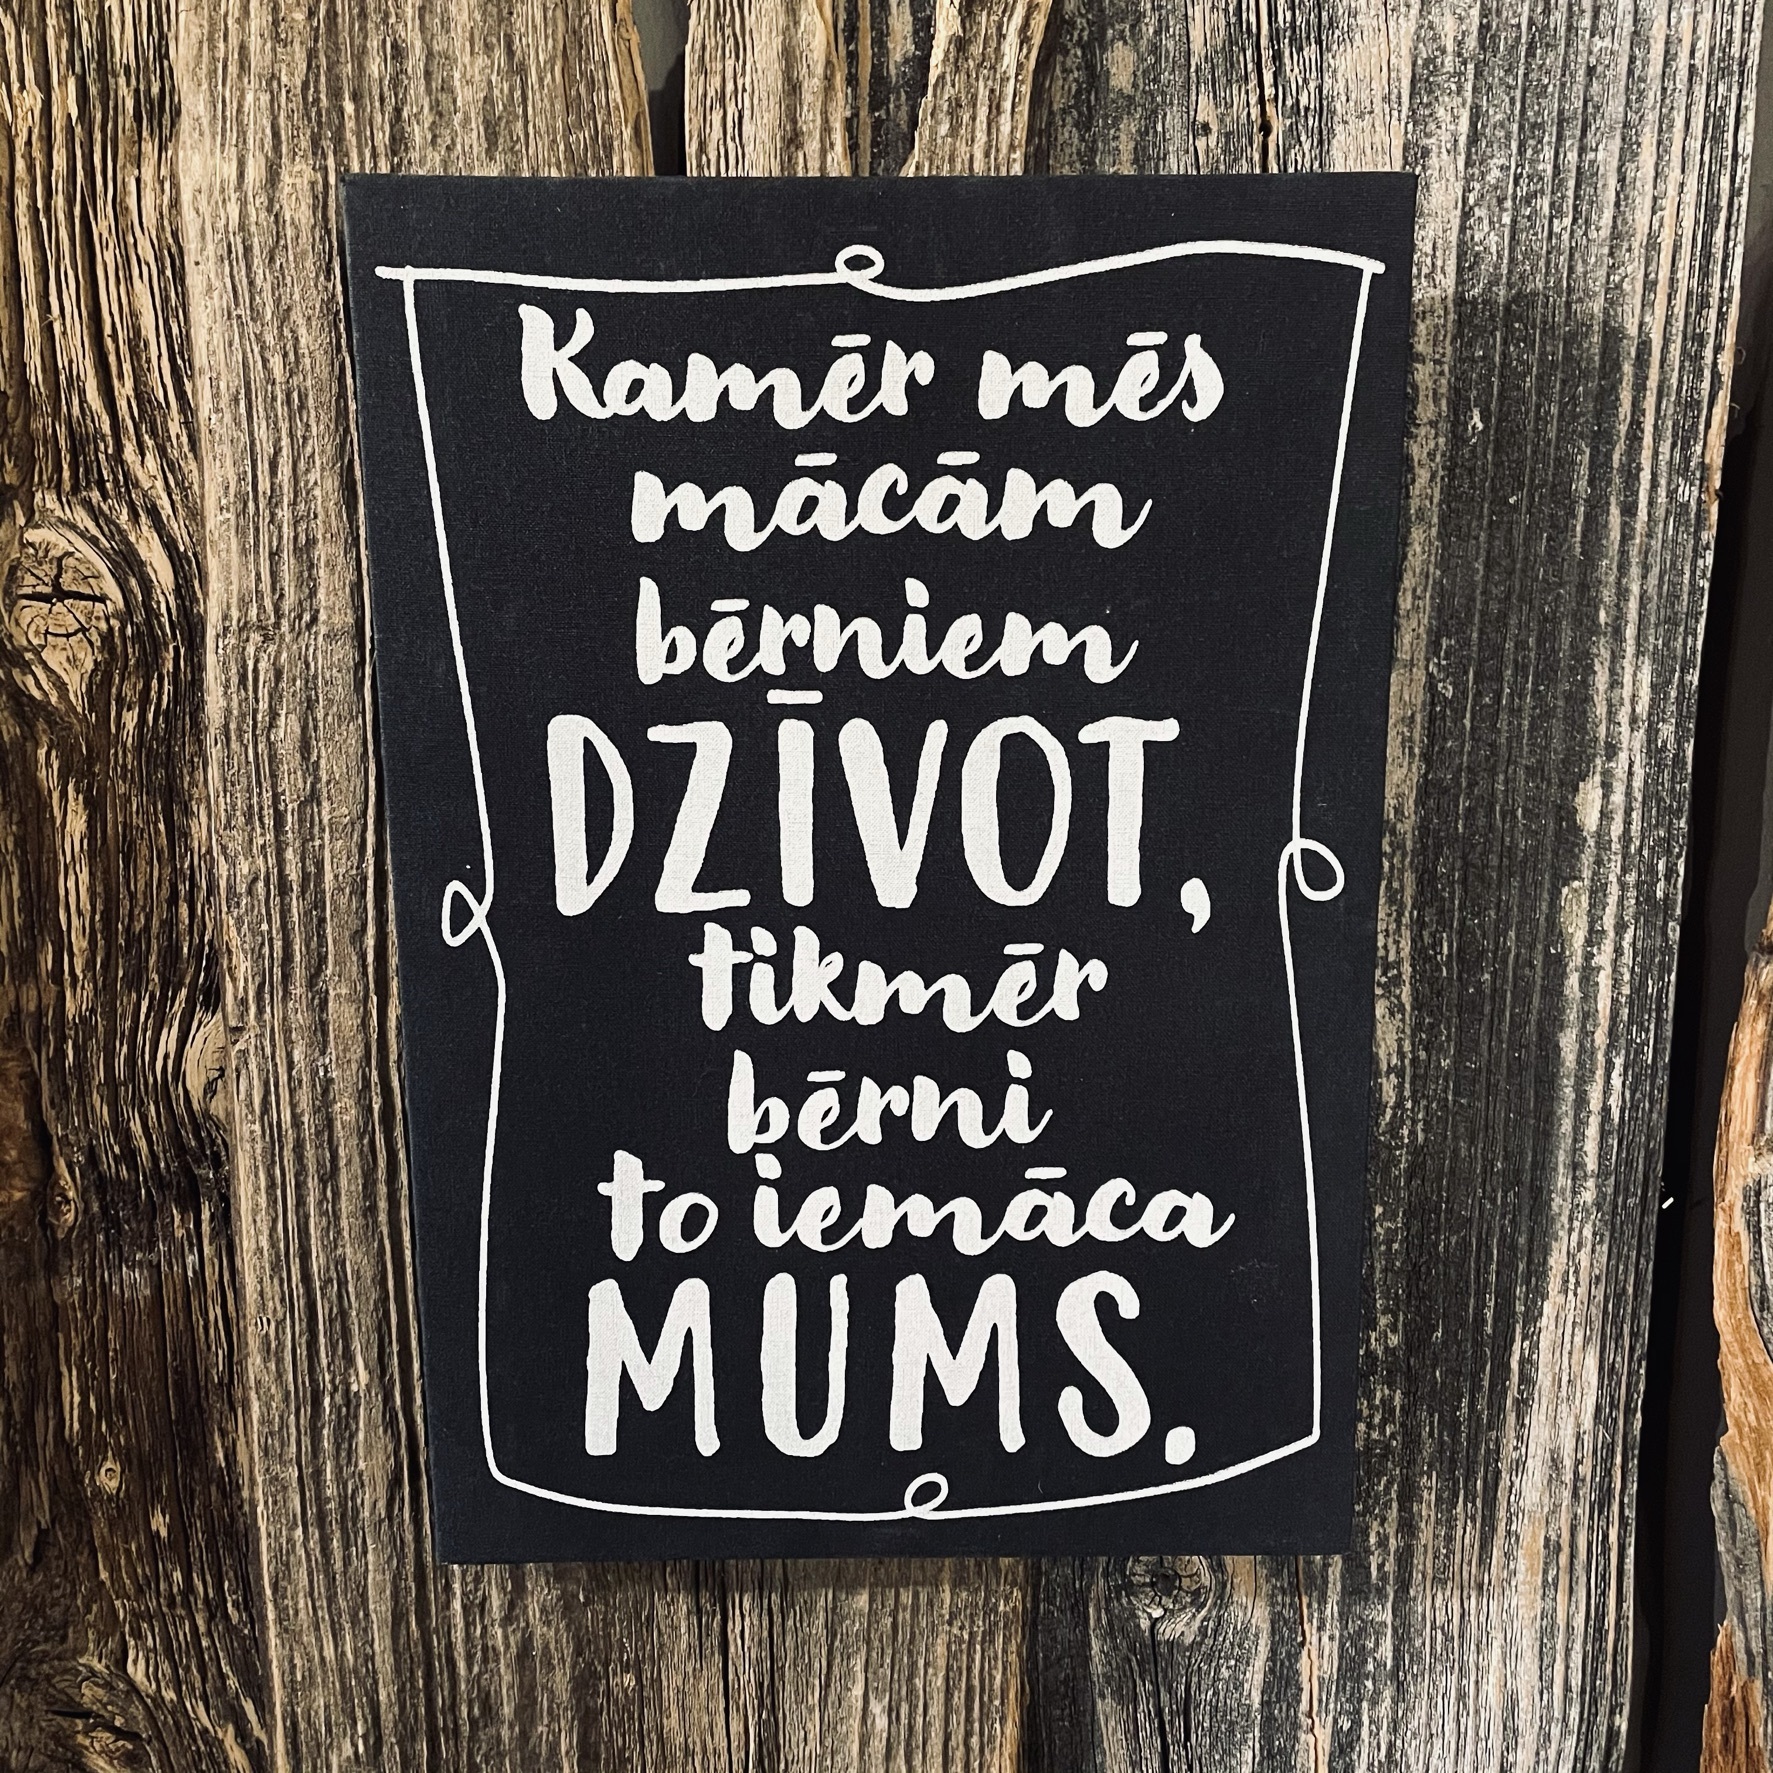 Kamēr mēs
mācām
bērniem
DZĪVOT,
tikmēr
bērni
to iemāca
MUMS.